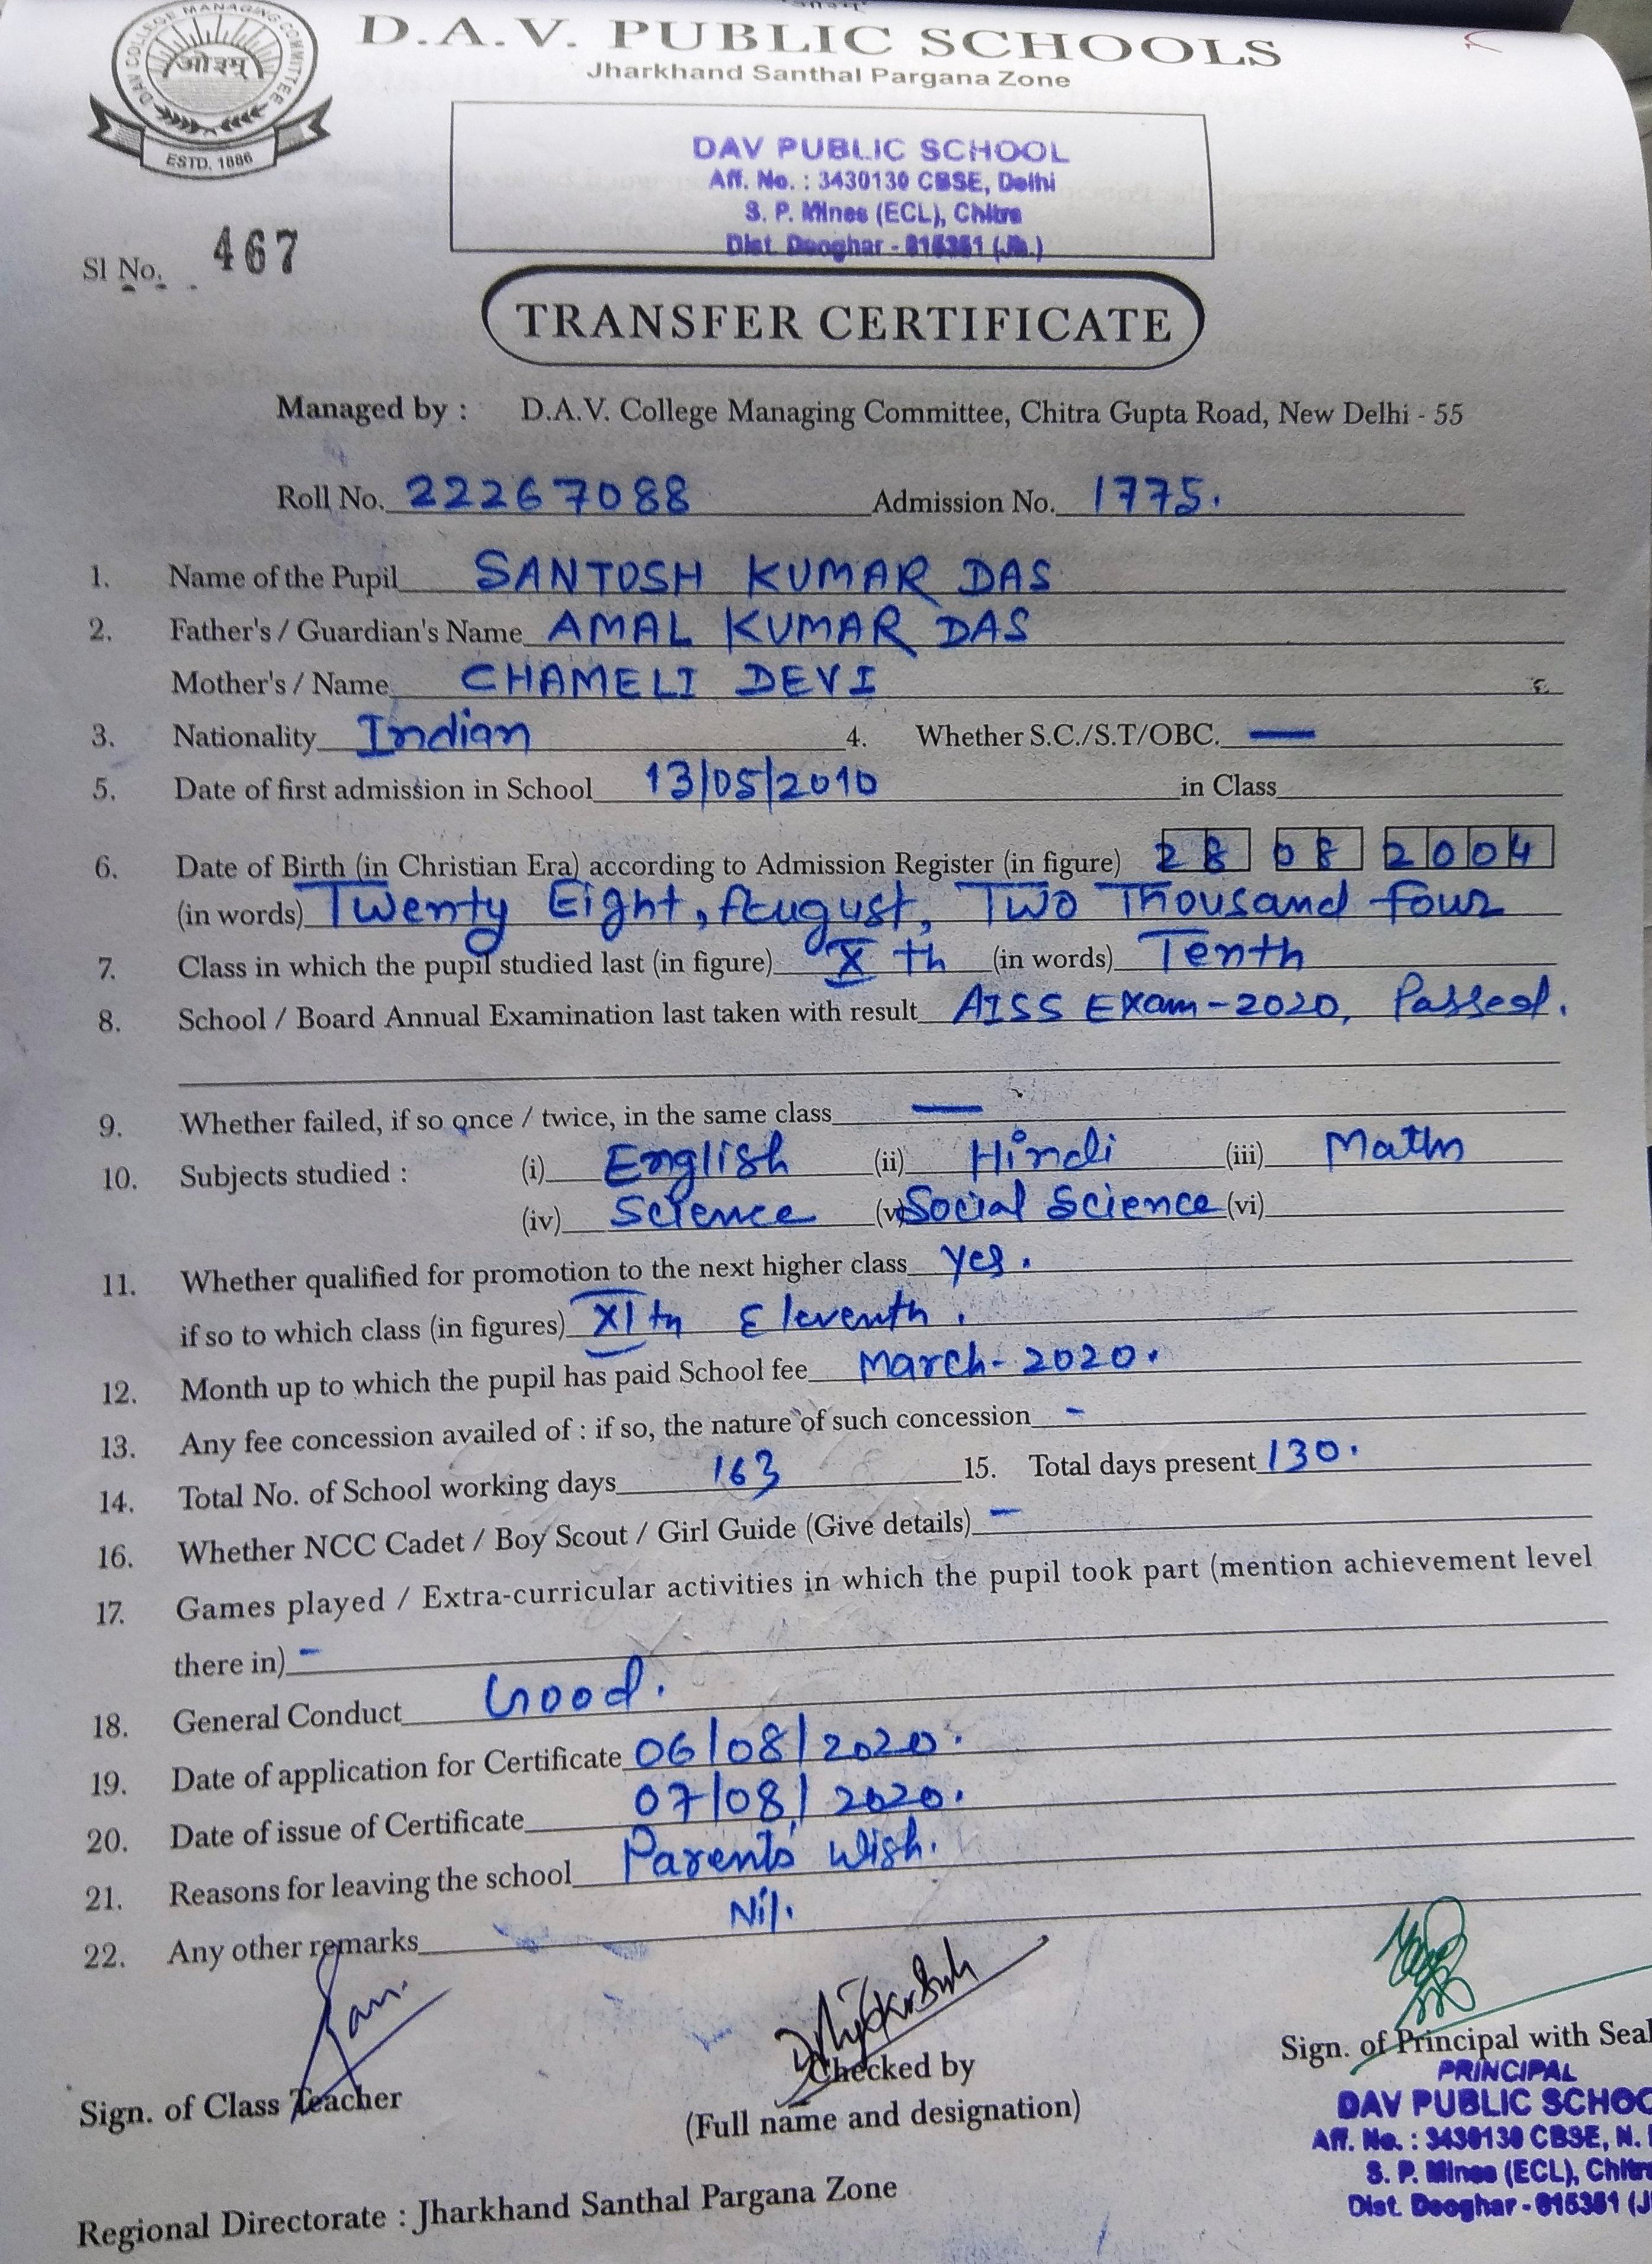 D.A.V. PUBLIC SCHOOLS
Jharkhand Santhal Pargana Zone
DAV COLLEGE MANAGING COMMITTEE
ओ३म्
ESTD. 1886
DAV PUBLIC SCHOOL
Aff. No. : 3430130 CBSE, Delhi
S. P. Mines (ECL), Chitra
Dist. Deoghar - 815351 (Jh.)
Sl No. 467
TRANSFER CERTIFICATE
Managed by : D.A.V. College Managing Committee, Chitra Gupta Road, New Delhi - 55
Roll No. 22267088 Admission No. 1775.
1. Name of the Pupil SANTOSH KUMAR DAS
2. Father's / Guardian's Name AMAL KUMAR DAS
Mother's / Name CHAMELI DEVI
3. Nationality Indian 4. Whether S.C./S.T/OBC. —
5. Date of first admission in School 13/05/2010 in Class
6. Date of Birth (in Christian Era) according to Admission Register (in figure) 28 08 2004
(in words) Twenty Eight, August, Two Thousand four
7. Class in which the pupil studied last (in figure) X th (in words) Tenth
8. School / Board Annual Examination last taken with result AISS Exam-2020, Passed.
9. Whether failed, if so once / twice, in the same class —
10. Subjects studied : (i) English (ii) Hindi (iii) Maths
(iv) Science (v) Social Science (vi)
11. Whether qualified for promotion to the next higher class yes.
if so to which class (in figures) XIth Eleventh.
12. Month up to which the pupil has paid School fee March-2020.
13. Any fee concession availed of : if so, the nature of such concession -
14. Total No. of School working days 163 15. Total days present 130.
16. Whether NCC Cadet / Boy Scout / Girl Guide (Give details) -
17. Games played / Extra-curricular activities in which the pupil took part (mention achievement level
there in) -
18. General Conduct Good.
19. Date of application for Certificate 06/08/2020.
20. Date of issue of Certificate 07/08/2020.
21. Reasons for leaving the school Parents' wish.
22. Any other remarks Nil.
Sign. of Class Teacher
Checked by
(Full name and designation)
Sign. of Principal with Seal
PRINCIPAL
DAV PUBLIC SCHOO
Aff. No. : 3430130 CBSE, N.
S. P. Mines (ECL), Chitra
Dist. Deoghar - 815351 (J
Regional Directorate : Jharkhand Santhal Pargana Zone